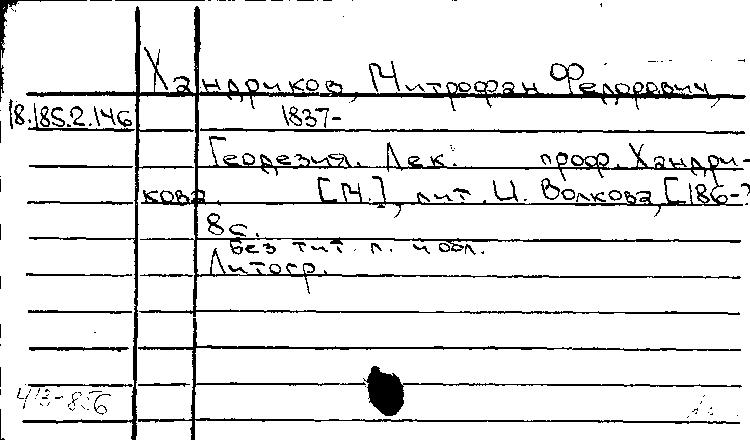 Хандриков, Митрофан Федорович,
18.185.2.146 1837-
Геодезия. Лек. проф. Хандри-
кова. [М.], лит. И. Волкова, [186-?
8 с.
Без тит. л. и обл.
Литогр.
413-856